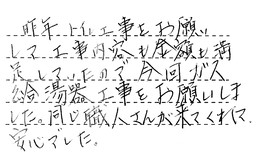 昨年トイレ工事をお願い
して工事内容も金額も満
足していたので今回ガス
給湯器工事をお願いしま
した。同じ職人さんが来てくれて
安心でした。